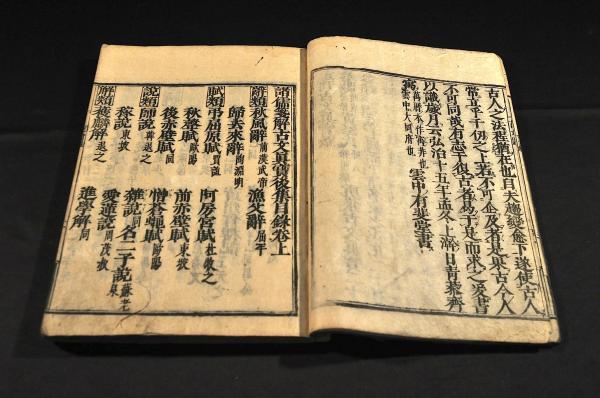 古人之法程猶在也自大趨變愈下遂使古人
常立乎千仞之上若不可企及者是果古人
不可同哉有志于復古者易于是而求之爰書
以識歲月云弘治十五年孟冬上澣日青藜齋
雲中有斐堂書
諸儒箋解古文眞寶後集目錄卷上
辭類 秋風辭 前漢武帝 漁父辭 屈平
歸去來辭 陶淵明
賦類 弔屈原賦 賈誼 阿房宮賦 杜牧之
秋聲賦 歐陽 前赤壁賦 東坡
後赤壁賦 同 憎蒼蠅賦 歐陽
說類 師說 韓退之 雜說 同 名二子說 蘇老泉
稼說 東坡 愛蓮說 周茂叔
解類 獲麟解 退之 進學解 同